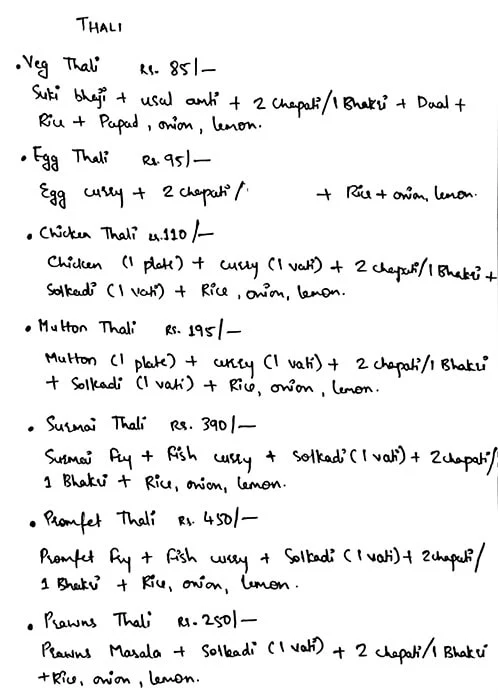 THALI
• Veg Thali Rs. 85/-
Suki bhaji + usal amti + 2 chapati/1 Bhakri + Daal +
Rice + Papad, onion, lemon.
• Egg Thali Rs. 95/-
Egg curry + 2 chapati/ + Rice + onion, lemon.
• Chicken Thali Rs. 110/-
Chicken (1 plate) + curry (1 vati) + 2 chapati/1 Bhakri +
Solkadi (1 vati) + Rice, onion, lemon.
• Mutton Thali Rs. 195/-
Mutton (1 plate) + curry (1 vati) + 2 chapati/1 Bhakri
+ Solkadi (1 vati) + Rice, onion, lemon.
• Surmai Thali Rs. 390/-
Surmai fry + fish curry + Solkadi (1 vati) + 2 chapati/
1 Bhakri + Rice, onion, lemon.
• Promfet Thali Rs. 450/-
Promfet fry + fish curry + Solkadi (1 vati) + 2 chapati/
1 Bhakri + Rice, onion, lemon.
• Prawns Thali Rs. 250/-
Prawns Masala + Solkadi (1 vati) + 2 chapati/1 Bhakri
+ Rice, onion, lemon.